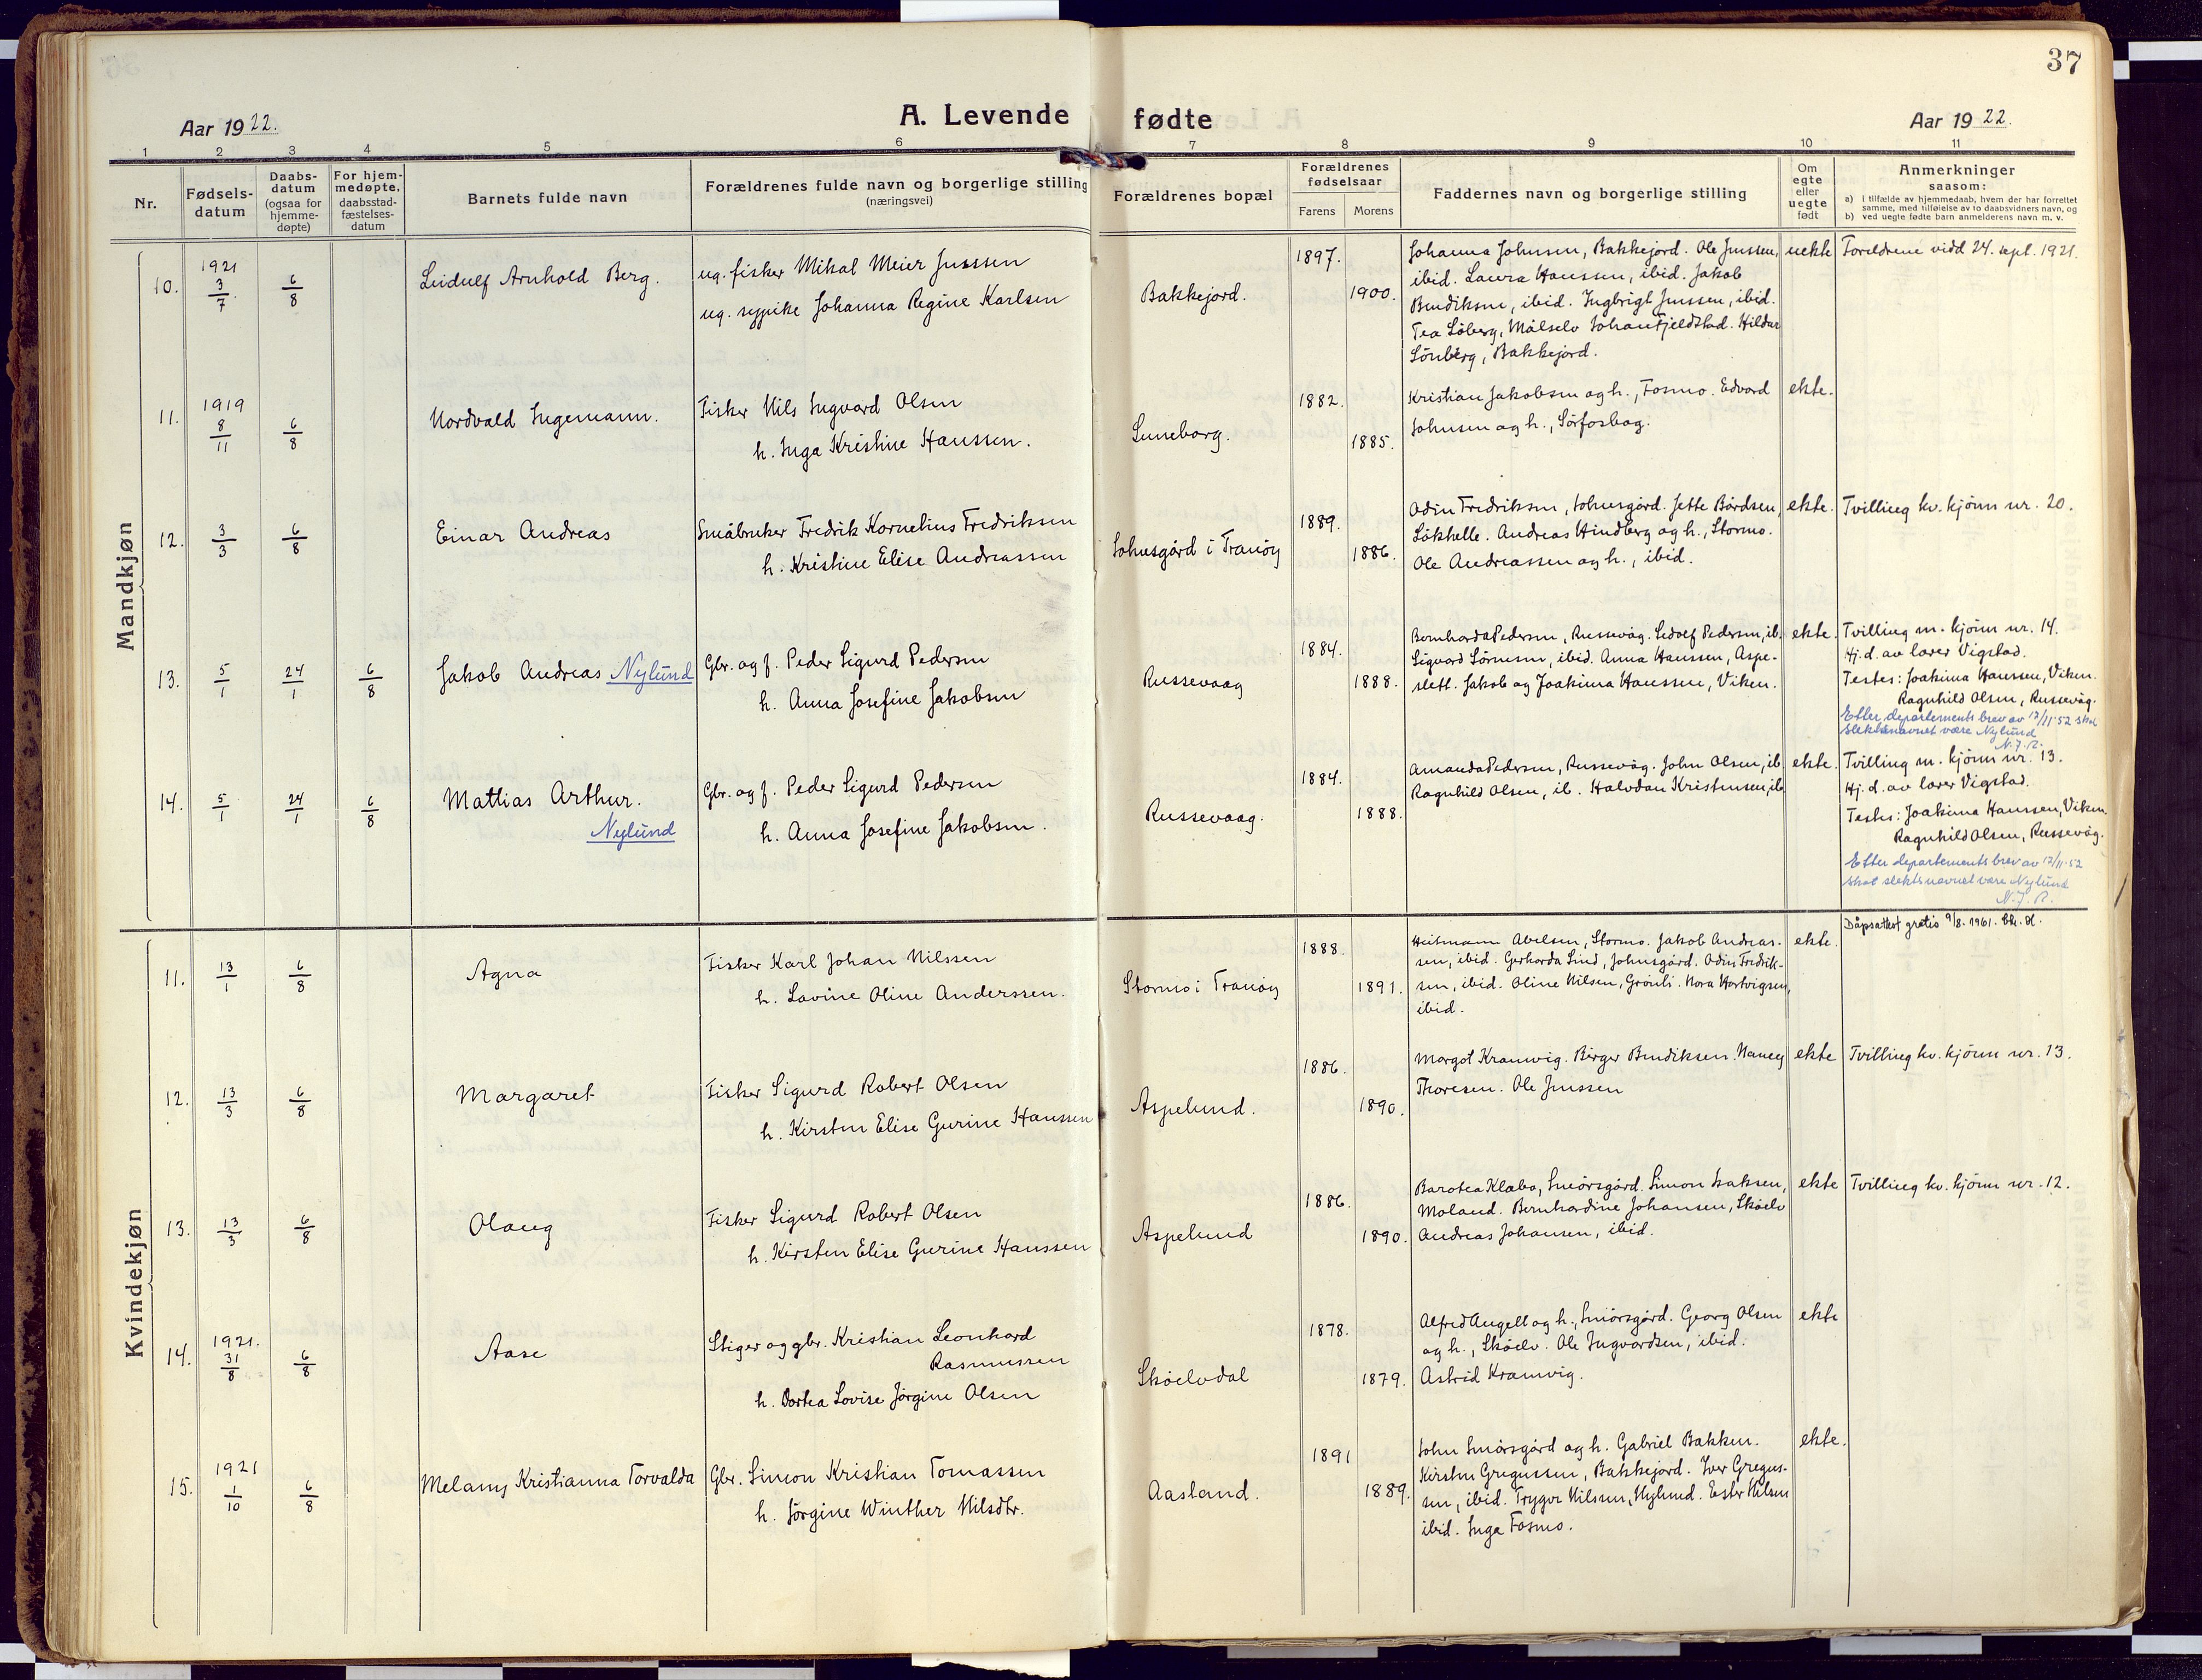 37
A. Levende fødte
Aar 1922.
Aar 1922.
1 2 3 4 5 6 7 8 9 10 11
Nr.
Fødsels-
datum
Daabs-
datum
(ogsaa for
hjemme-
døpte)
For hjem-
medøpte,
daabsstad-
fæstelses-
datum
Barnets fulde navn
Forældrenes fulde navn og borgerlige stilling
(næringsvei)
Forældrenes bopæl
Forældrenes
fødselsaar
Farens
Morens
Faddernes navn og borgerlige stilling
Om
egte
eller
uegte
født
Anmerkninger
saasom:
a) i tilfælde av hjemmedaab, hvem der har forrettet
samme, med tilføielse av to daabsvidners navn, og
b) ved uegte fødte barn anmelderens navn m. v.
Mandkjøn
10.
1921
3/7
6/8
Leidulf Arnhold Berg.
ug. fisker Mikal Meier Jenssen
ug. sypike Johanna Regine Karlsen
Bakkejord.
1897.
1900.
Johanna Johnsen, Bakkejord. Ole Jenssen,
ibid. Laura Hanssen, ibid. Jakob
Bendiksen, ibid. Ingbrigt Jenssen, ibid.
Tea Löberg, Målselv Johan Fjeldstad. Hildur
Lönberg, Bakkejord.
uekte
Foreldrene vidd 24. sept. 1921.
11.
1919
8/11
6/8
Nordvald Ingemann.
Fisker Nils Ingvard Olsen
h. Inga Kristine Hanssen.
Luneborg.
1882.
1885.
Kristian Jakobsen og h., Fosmo. Edvard
Johnsen og h., Sörfosbog.
ekte.
12.
3/3
6/8
Einar Andreas
Småbruker Fredrik Kornelius Fredriksen
h. Kristine Elise Andreassen
Johnsgård i Tranöy
1889.
1886.
Odin Fredriksen, Johnsgård. Jette Bårdsen,
Lökhelle. Andreas Hindberg og h., Stormo.
Ole Andreassen og h., ibid.
ekte.
Tvilling kv. kjönn nr. 20.
13.
5/1
24/1
6/8
Jakob Andreas Nylund
Gbr. og f. Peder Sigurd Pedersen
h. Anna Josefine Jakobsen
Russevaag
1884.
1888.
Bernharda Pedersen, Russevåg. Ledolf Pedersen, ib.
Sigvard Sörensen, ibid. Anna Hanssen, Aspe-
slett. Jakob og Joakima Hanssen, Viken.
ekte.
Tvilling m. kjönn nr. 14.
Hj. d. av lærer Vigstad.
Testes: Joakima Hanssen, Viken.
Ragnhild Olsen, Russevåg.
Etter departements brev av 12/11-52 skal
slektsnavnet være Nylund
N.J.R.
14.
5/1
24/1
6/8
Mattias Arthur.
Nylund
Gbr. og f. Peder Sigurd Pedersen
h. Anna Josefine Jakobsen.
Russevaag.
1884.
1888.
Amanda Pedersen, Russevåg. John Olsen, ib.
Ragnhild Olsen, ib. Halvdan Kristensen, ib.
ekte.
Tvilling m. kjönn nr. 13.
Hj. d. av lærer Vigstad.
Testes: Joakima Hanssen, Viken.
Ragnhild Olsen, Russevåg.
Etter departements brev av 12/11-52
skal slektsnavnet være Nylund
N.J.R.
Kvindekjøn
11.
13/1
6/8
Agna
Fisker Karl Johan Nilssen
h. Lovine Oline Anderssen.
Stormo i Tranöy
1888.
1891.
Heitmann Abelsen, Stormo. Jakob Andreas-
sen, ibid. Gerharda Lind, Johnsgård. Odin Fredrik-
sen, ibid. Oline Nilsen, Grönli. Nora Hartvigsen,
ibid.
ekte.
Dåpsattest gratis 9/8. 1961.
12.
13/3
6/8
Margaret
Fisker Sigurd Robert Olsen
h. Kirsten Elise Gurine Hanssen
Aspelund.
1886.
1890.
Margot Kramvig. Birger Bendiksen. Nancy
Thoresen. Ole Jenssen
ekte
Tvilling kv. kjönn nr. 13.
13.
13/3
6/8
Olaug
Fisker Sigurd Robert Olsen
h. Kirsten Elise Gurine Hanssen
Aspelund
1886.
1890.
Barotea Klæbo, Smörsgård. Simon Isaksen,
Moland. Bernhardine Johansen, Sköelv
Andreas Johansen, ibid.
ekte
Tvilling kv. kjönn nr. 12.
14.
1921.
31/8
6/8
Aase
Stiger og gbr. Kristian Leonhard
Rasmussen
h. Dortea Lovise Jörgine Olsen
Sköelvdal
1878.
1879.
Alfred Angell og h., Smörsgård. Georg Olsen
og h., Sköelv. Ole Ingvardsen, ibid.
Astrid Kramvig.
ekte
15.
1921
1/10
6/8
Melany Kristianna Torvalda
Gbr. Simon Kristian Tomassen
h. Jörgine Winther Nilsdtr.
Aasland.
1891
1889.
John Smörsgård og h. Gabriel Bakken.
Kirsten Gregussen, Bakkejord. Iver Gregus-
sen, ibid. Trygve Nilsen, Nylund. Ester Nilsen
ibid. Inga Fosmo.
ekte.